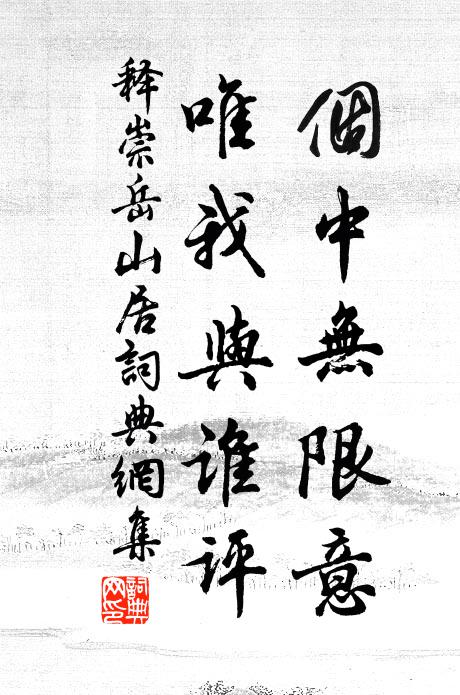 個中無限意
唯我與誰評
释崇岳山居詞典網集
詞典网